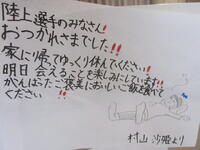 陸上選手のみなさん!
おつかれさまでした!!
家に帰てゆっくり休んでください!!
明日会えることを楽しみにしています!!
がんばったご褒美においしいご飯を食べて
ください!!
村山沙姫より